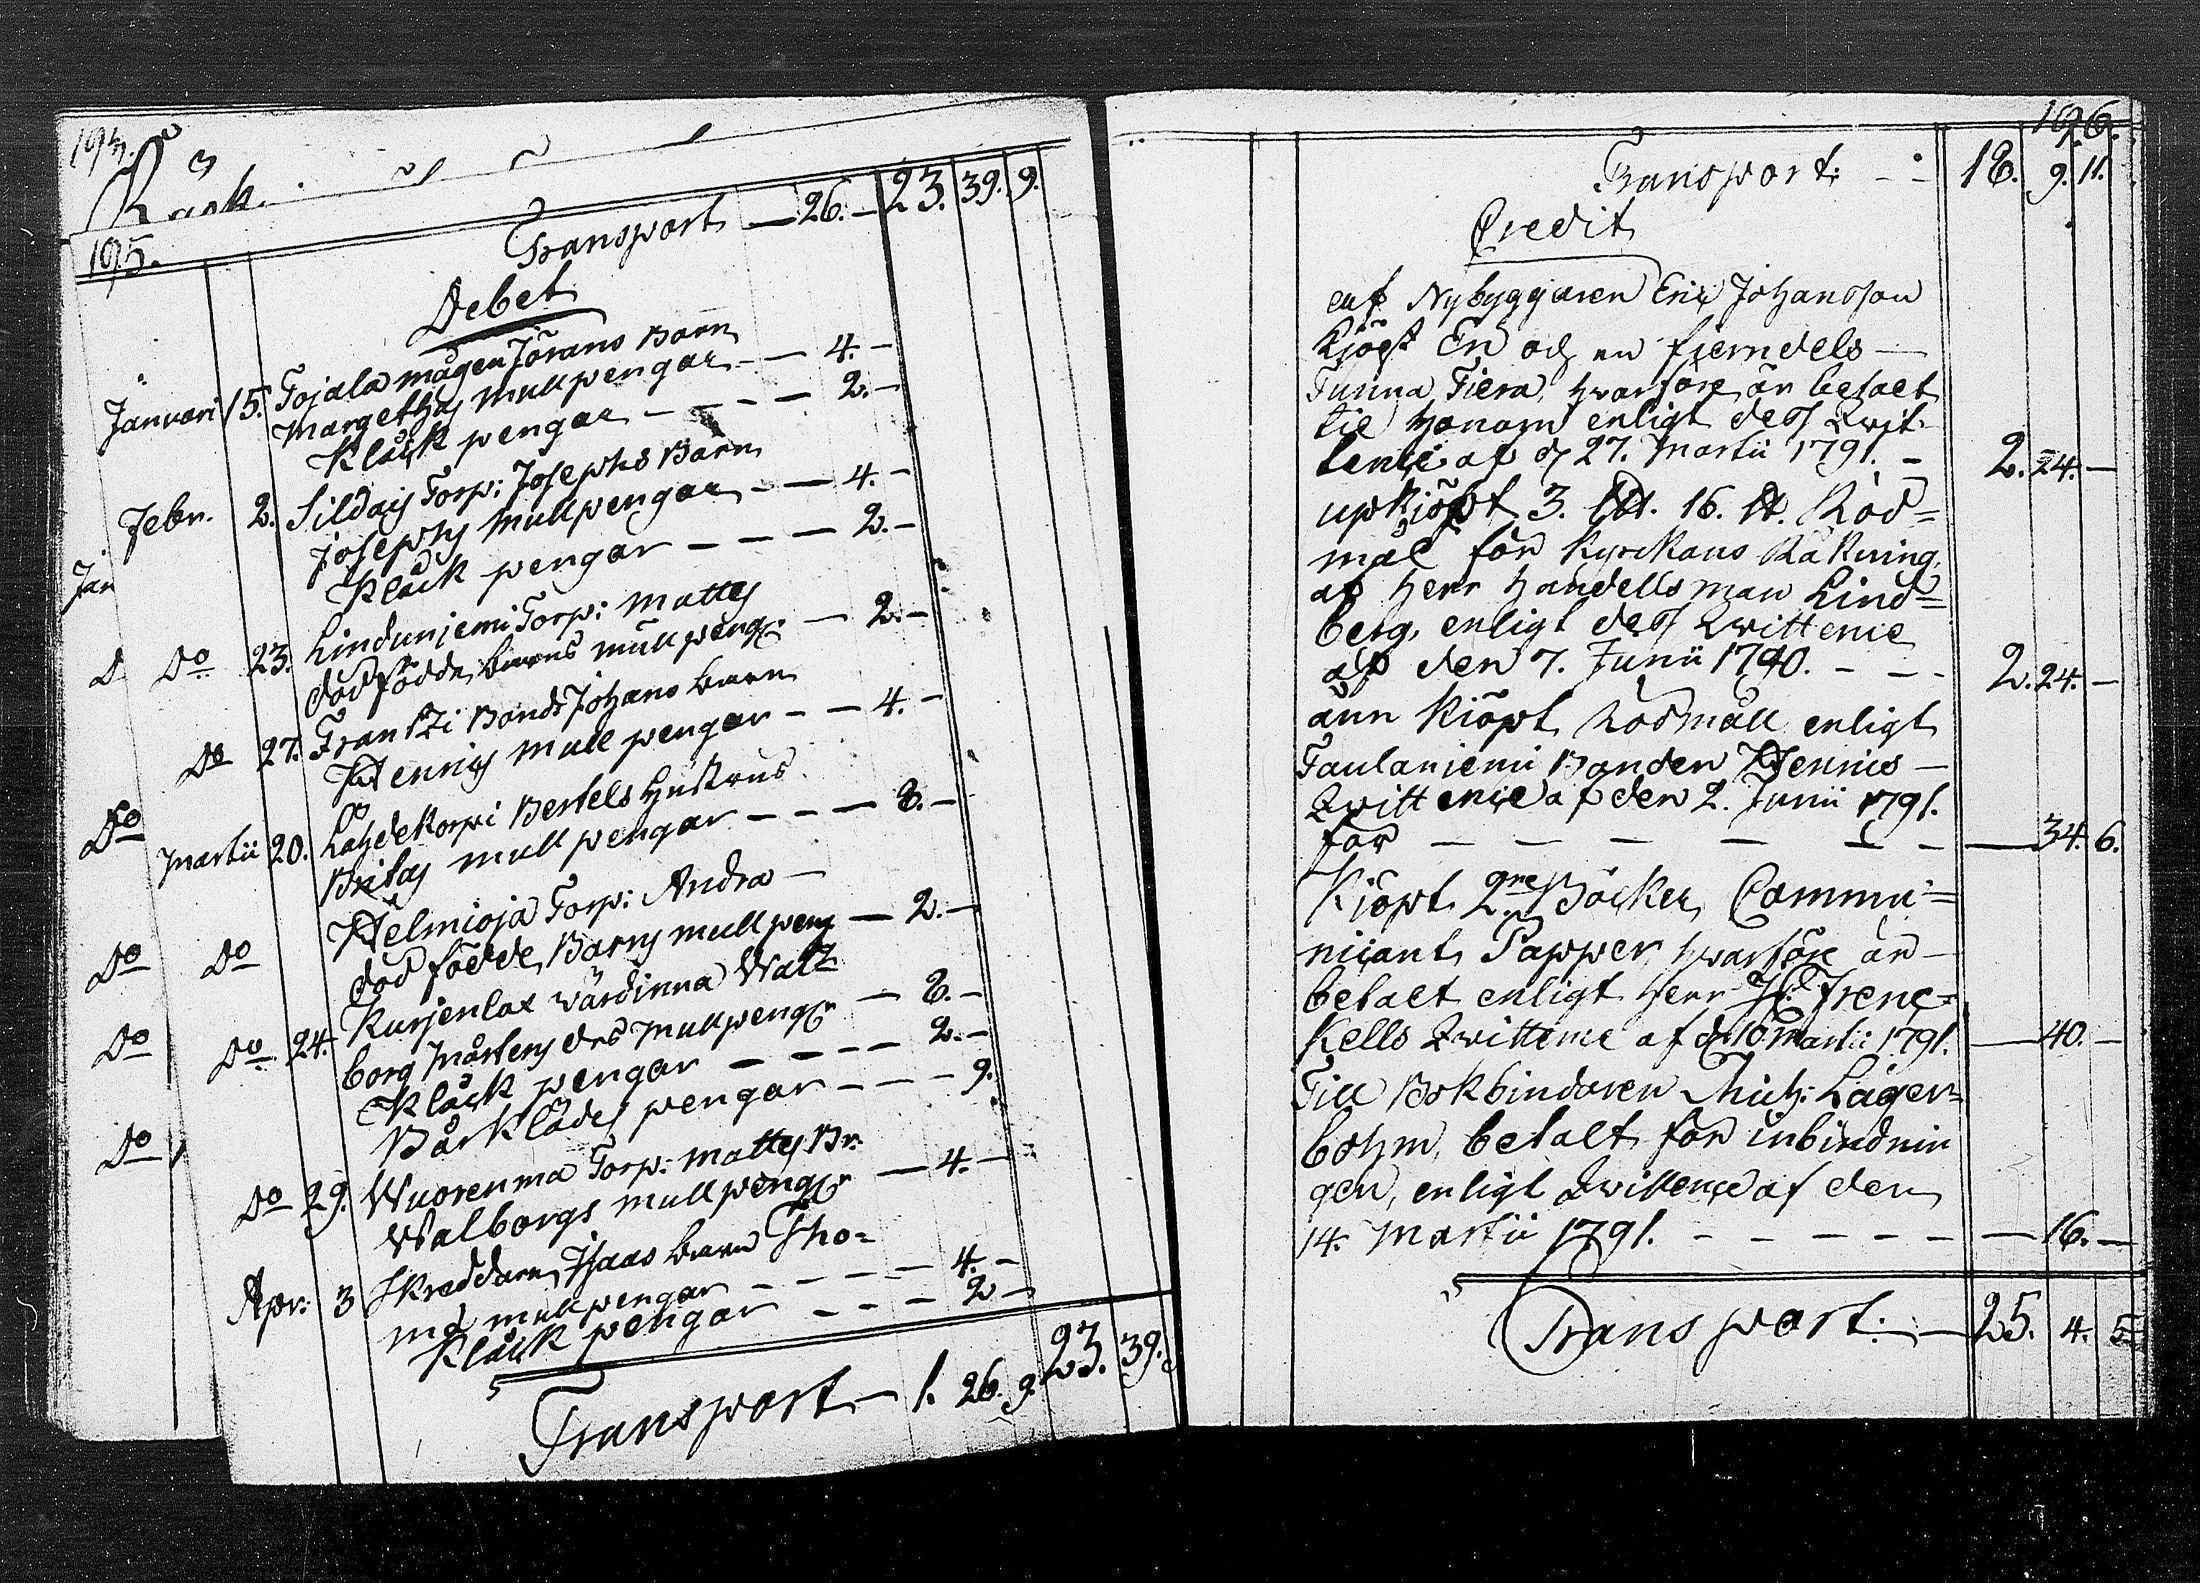 193.
Räck
195.
Transport — 26. — 23. 39. 9.
Debet
Januari 15. Tojala mågen Jörans Barn
Margethas mullpengar — — 4. —
Klåck pengar — — — — 2. —
Febr. 2. Sildais Torp: Josephs Barn
Josephs Mullpengar — — 4. —
Klåck pengar — — — 2. —
Jan
D Do 23. Lindunjemi Torp: Mattes
död födde barns mullpeng: — 2. —
Do 27. Frantzi Bonds Johans barn
Hennis mull pengar — — 4. —
Do
Martii 20. Lahdekorpi Bertels Hustrus
Britas mull pengar — — — 8. —
Do Do Helmioja Torp: Andra —
död födde Barns mull peng — 2. —
Do Do 24. Kurjenlax wärdinna Wal-
borg Mårtens drs Mullpeng: — 8. —
Klåck pengar — — — — 2. —
Bårklädes pengar — — — 9.
Do
Do 29. Wuorenma Torp: Mattes Br:
Walborgs mullpeng: — 4. —
Apr: 3 Skreddarn Isaas barn Tho-
ms mullpengar — — — — 4. —
Klåck pengar — — — 2 —
Transport — 1. 26. 9. 23. 39.
196.
Transport: — — 18. 9. 11.
Credit
af Nybyggaren Eric Johansson
Kjöpt En och en fierndels —
Tunna Tiera, hwarföre är betalt
till honom enligt dess Qwit-
tence af d 27. Martii 1791. — 2. 24. —
upkiöpt 3. L℔. 16. ℔. Röd=
mål för Kyrckans Räkning,
af Herr Handellsman Lind=
berg, enligt dess Qwittence
af den 7. Junii 1790. — — — 2. 24. —
änn Kiöpt Rödmåll enligt
Taulaniemi Bonden Hennics —
Qwittence af den 2. Junii 1791.
för — — — — — — — — 34. 6.
Kiöpt 2ne Böcker Commu-=
nicants Papper, hwarföre är —
betalt enligt Herr H: Frenc=
kells Qwittence af d 10 Martii 1791. — 40. —
Till Bokbindaren Mich: Lager=
bohm, betalt för inbindnin
gen, enligt Qwittence af den
14. Martii 1791. — — — — — — 16. —
Transport: — 25. 4. 5